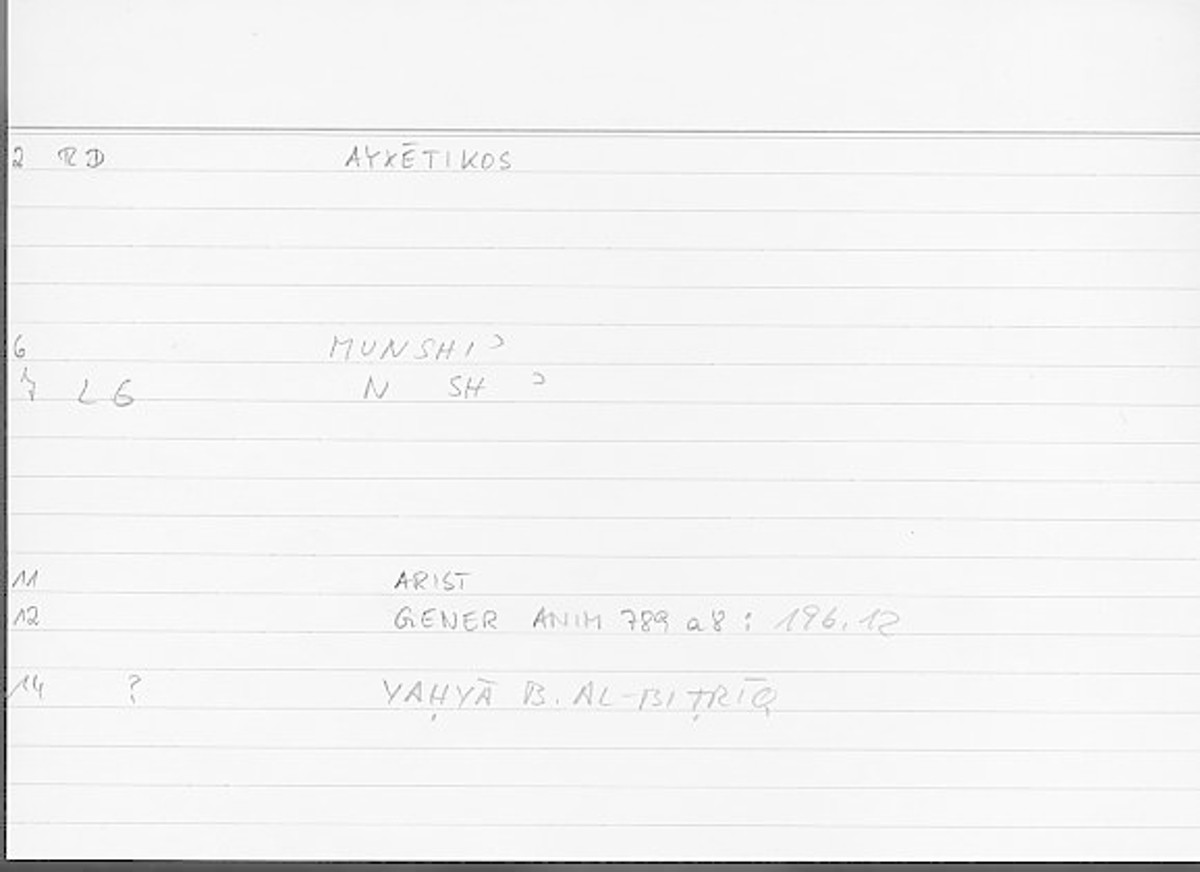 2 RD AYXĒTIKOS
6 MUNSHIʾ
7 LG N SH ʾ
11 ARIST
12 GENER ANIM 789 a8 : 196.12
14 ? YAḤYĀ B. AL-BIṬRĪQ